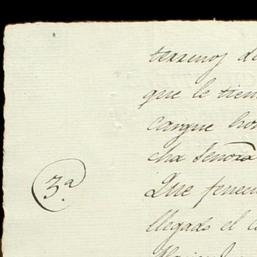 terrenos d
que le tien
cargue ho
cha Señora
3.ª
Que fenec
llegado el c